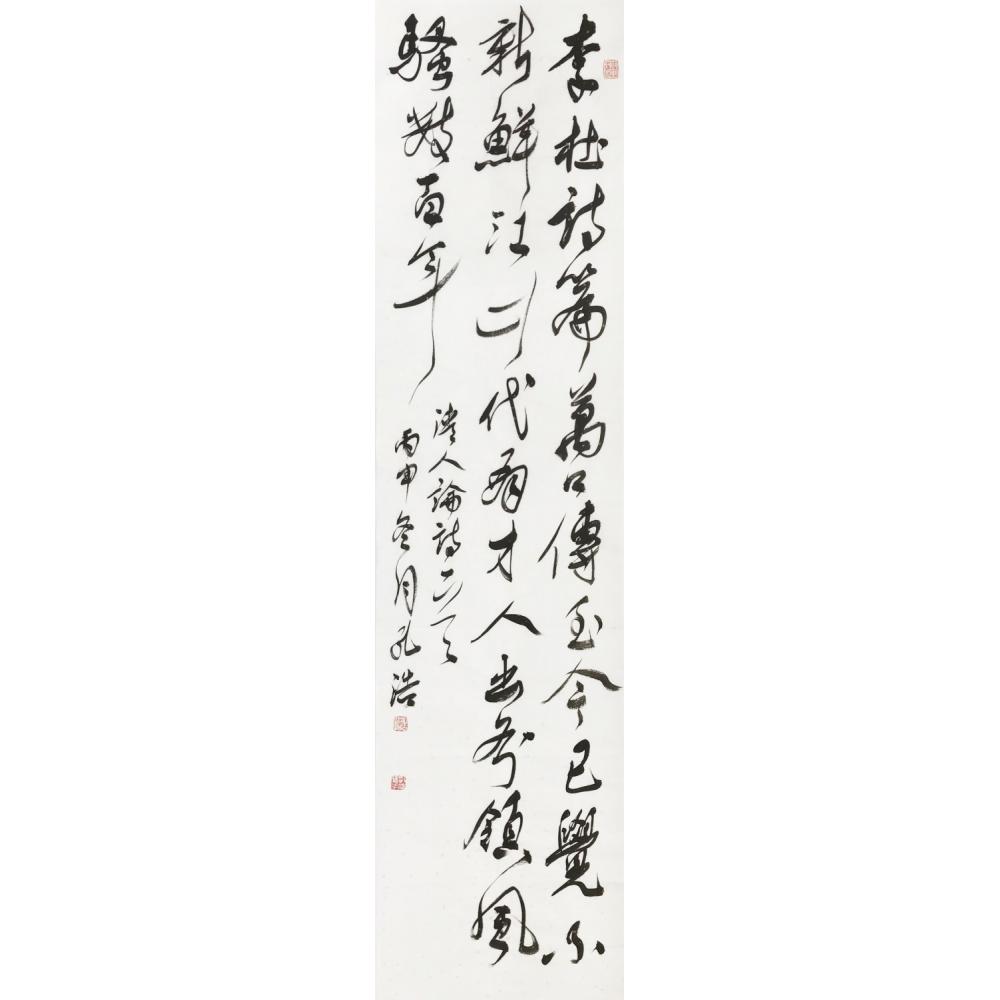 李杜詩篇萬口傳至今已覺不
新鮮江山代有才人出各領風
騷數百年
清人論詩
丙申冬月孔浩